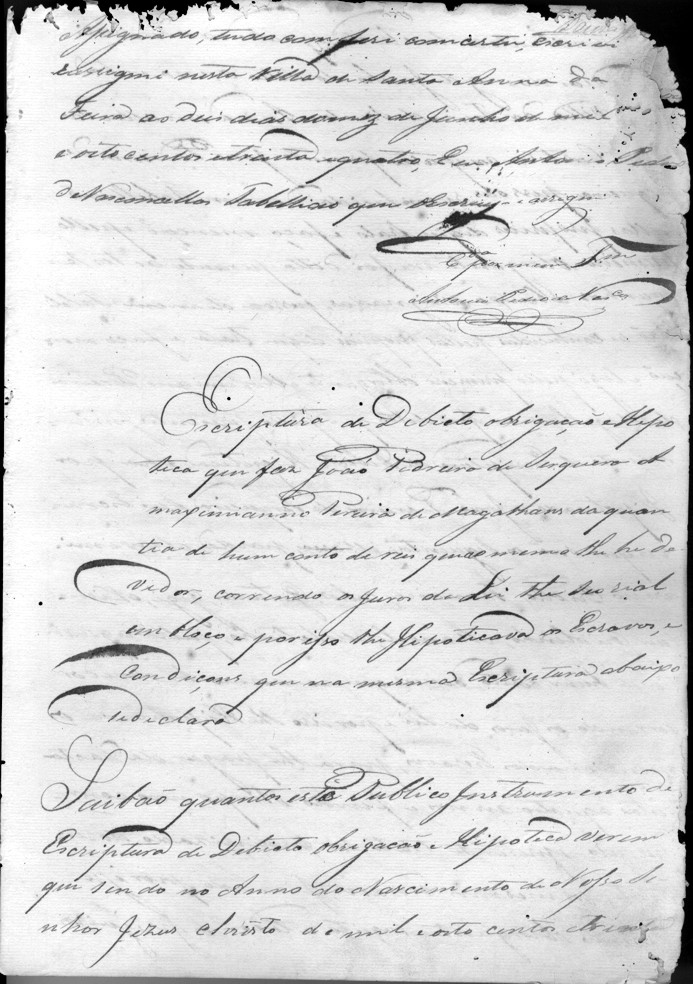 Assignado, tudo comferi comcertei, escrevi
eassignei nesta Villa de Santa Anna da
Feira ao dois dias domez de Junho de mil
e oito centos etrinta equatro, Eu, Antonio Pedr
de Vasconcellos Tabelliaó que oescrevy e assigne
Antonio Pedro de Vaços
Escriptura de Debieto obrigaçaõ e Hipo
tica que faz Joaó Pedreira de Serqueira A
maximianno Pereira de Magalhans da quan
tia de hum conto de reis que o mesmo lhe he de
vedor, correndo os Juros da Lei the seu rial
embloço e porisso lhe Hipoticava os Escravos, e
Condiçoens que na mesma Escriptura abaixo
sedeclara
Saibaó quantos este Publico Instrumento de
Escriptura de Debieto obrigacaõ e Hipoteca virem
que sendo no Anno do Nascimento de Nosso Se
nhor Jezus Christo de mil e oito centos etrinta